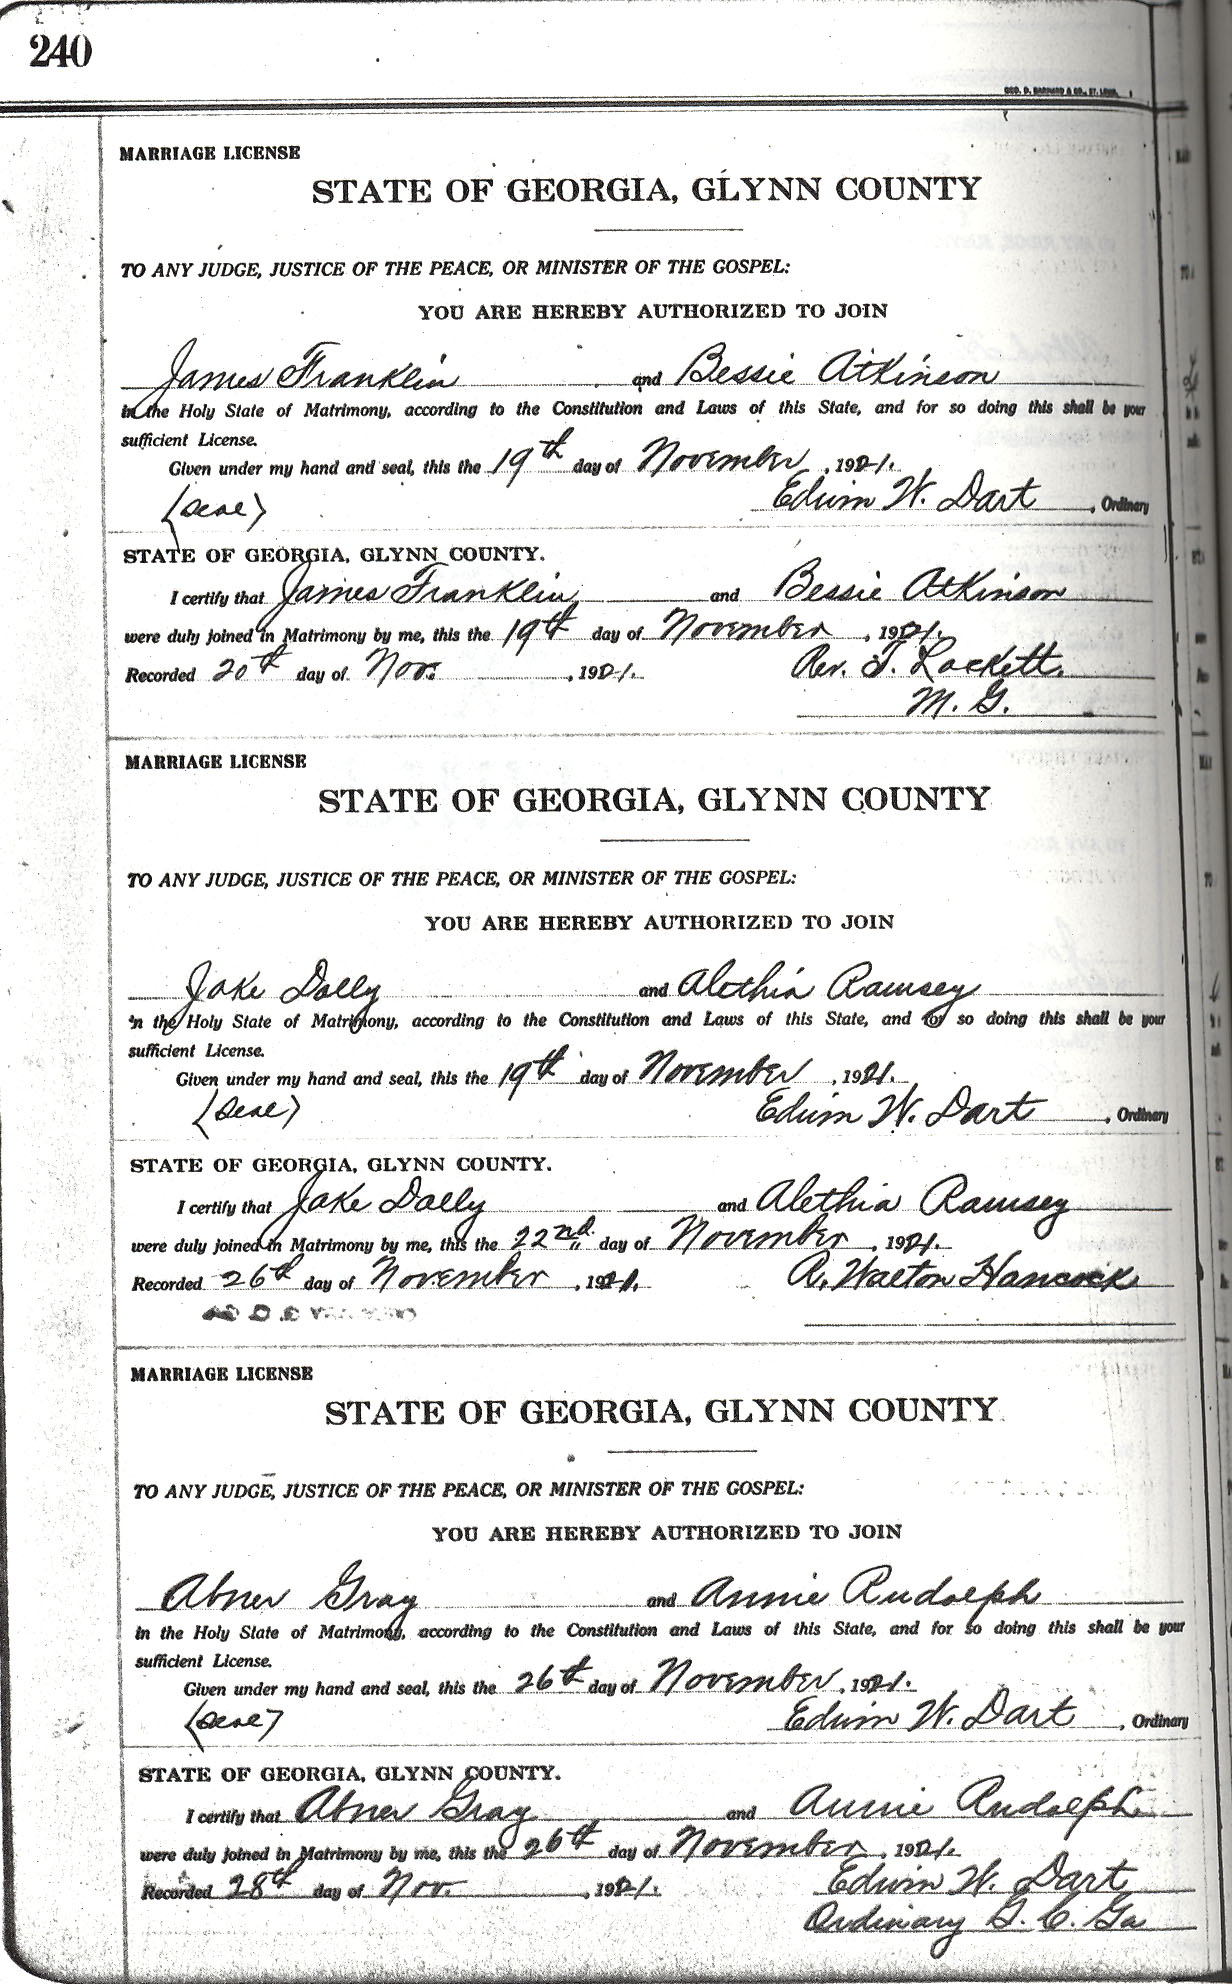 240
GEO. D. BARNARD & CO., ST. LOUIS.
MARRIAGE LICENSE
STATE OF GEORGIA, GLYNN COUNTY
TO ANY JUDGE, JUSTICE OF THE PEACE, OR MINISTER OF THE GOSPEL:
YOU ARE HEREBY AUTHORIZED TO JOIN
James Franklin and Bessie Atkinson
in the Holy State of Matrimony, according to the Constitution and Laws of this State, and for so doing this shall be your
sufficient License.
Given under my hand and seal, this the 19th day of November, 1921.
(Seal) Edwin W. Dart, Ordinary
STATE OF GEORGIA, GLYNN COUNTY.
I certify that James Franklin and Bessie Atkinson
were duly joined in Matrimony by me, this the 19th day of November, 1921.
Recorded 20th day of Nov. , 1921. Rev. T. Lockett.
M. G.
MARRIAGE LICENSE
STATE OF GEORGIA, GLYNN COUNTY
TO ANY JUDGE, JUSTICE OF THE PEACE, OR MINISTER OF THE GOSPEL:
YOU ARE HEREBY AUTHORIZED TO JOIN
Jake Dolly and Alethia Ramsey
in the Holy State of Matrimony, according to the Constitution and Laws of this State, and for so doing this shall be your
sufficient License.
Given under my hand and seal, this the 19th day of November, 1921.
(Seal) Edwin W. Dart, Ordinary
STATE OF GEORGIA, GLYNN COUNTY.
I certify that Jake Dolly and Alethia Ramsey
were duly joined in Matrimony by me, this the 22nd. day of November, 1921.
Recorded 26th day of November, 1921. R. Walton Hancock
MARRIAGE LICENSE
STATE OF GEORGIA, GLYNN COUNTY
TO ANY JUDGE, JUSTICE OF THE PEACE, OR MINISTER OF THE GOSPEL:
YOU ARE HEREBY AUTHORIZED TO JOIN
Abner Gray and Annie Rudolph
in the Holy State of Matrimony, according to the Constitution and Laws of this State, and for so doing this shall be your
sufficient License.
Given under my hand and seal, this the 26th day of November, 1921.
(Seal) Edwin W. Dart, Ordinary
STATE OF GEORGIA, GLYNN COUNTY.
I certify that Abner Gray and Annie Rudolph
were duly joined in Matrimony by me, this the 26th day of November, 1921.
Recorded 28th day of Nov. , 1921. Edwin W. Dart
Ordinary G. C. Ga